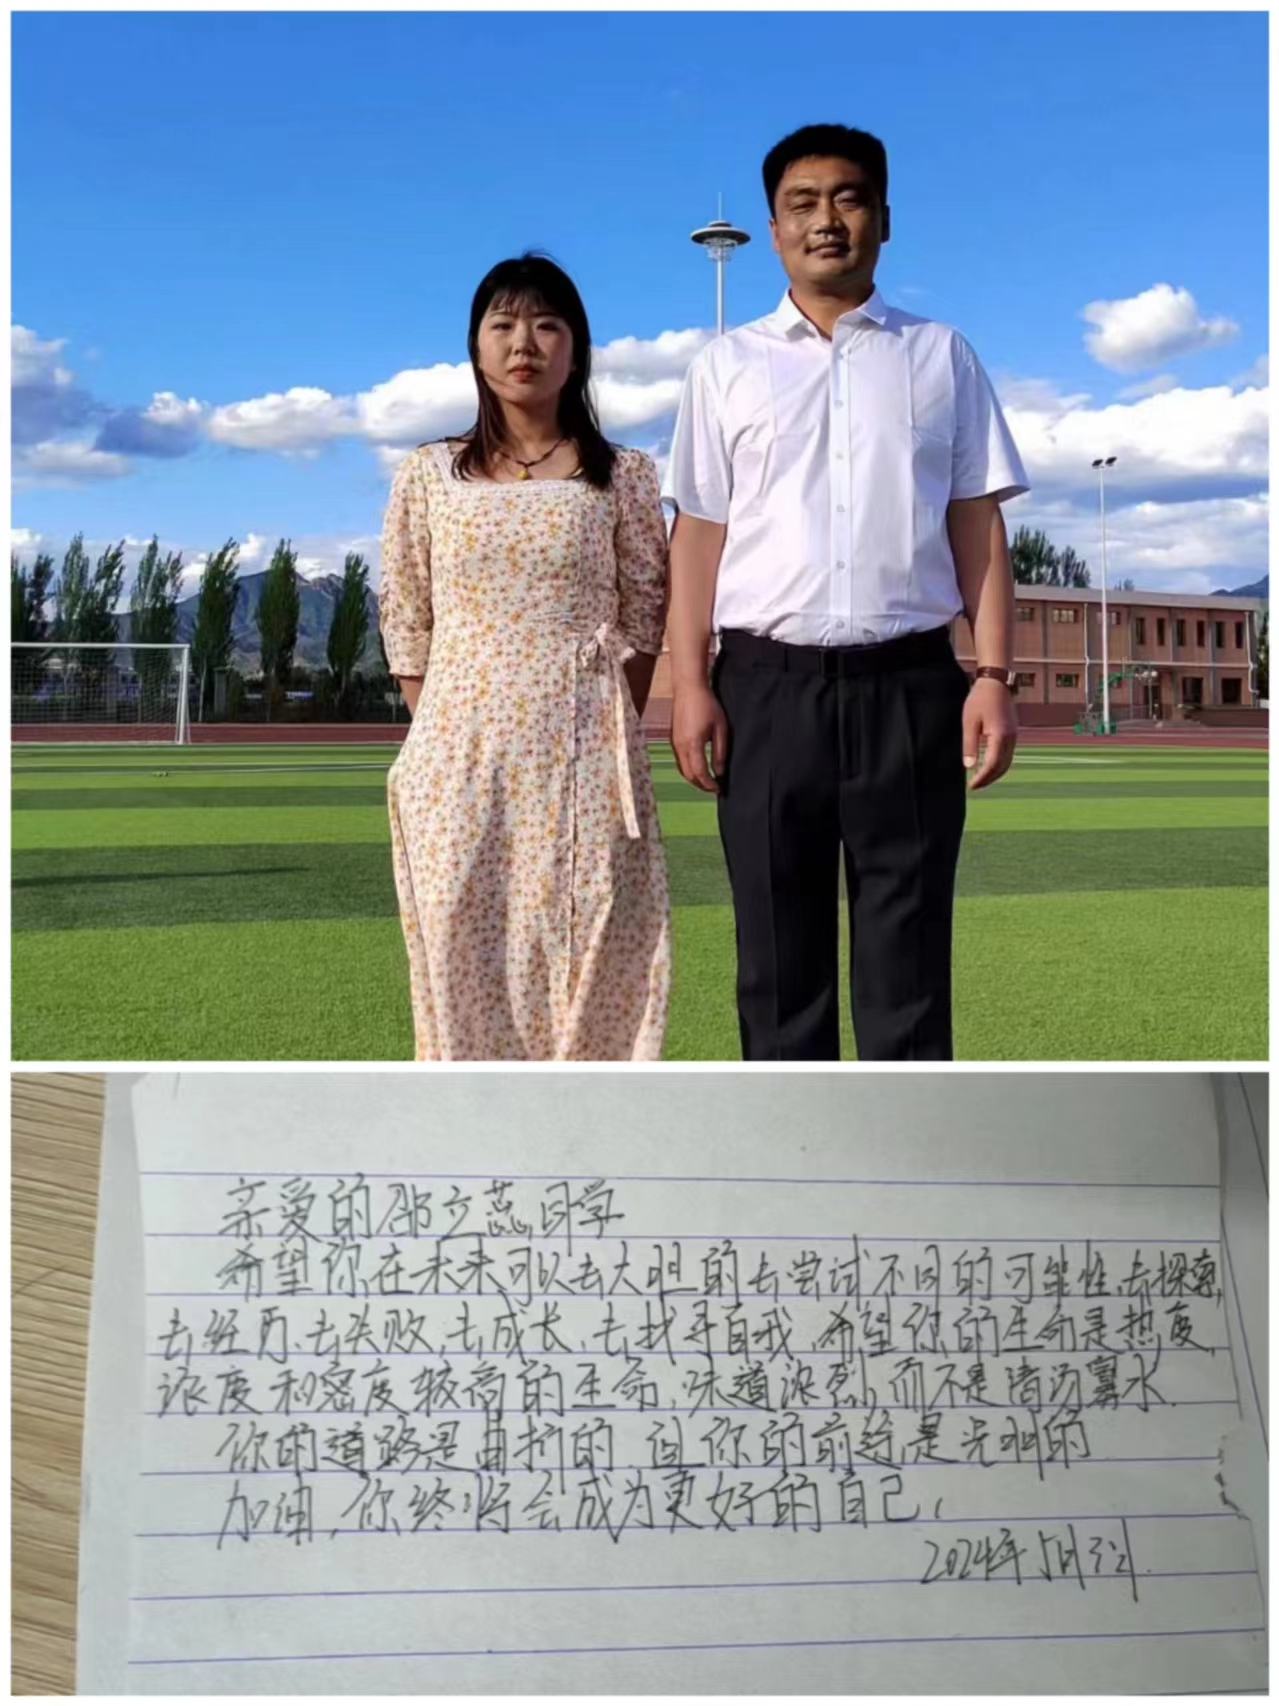 亲爱的邵立蕊同学
希望你在未来可以去大胆的去尝试不同的可能性、去探索,
去经历、去失败、去成长、去找寻自我,希望你的生命是热度,
浓度和密度较高的生命,味道浓烈,而不是清汤寡水.
你的道路是曲折的.但你的前途是光明的
加油,你终将会成为更好的自己,
2024年5月